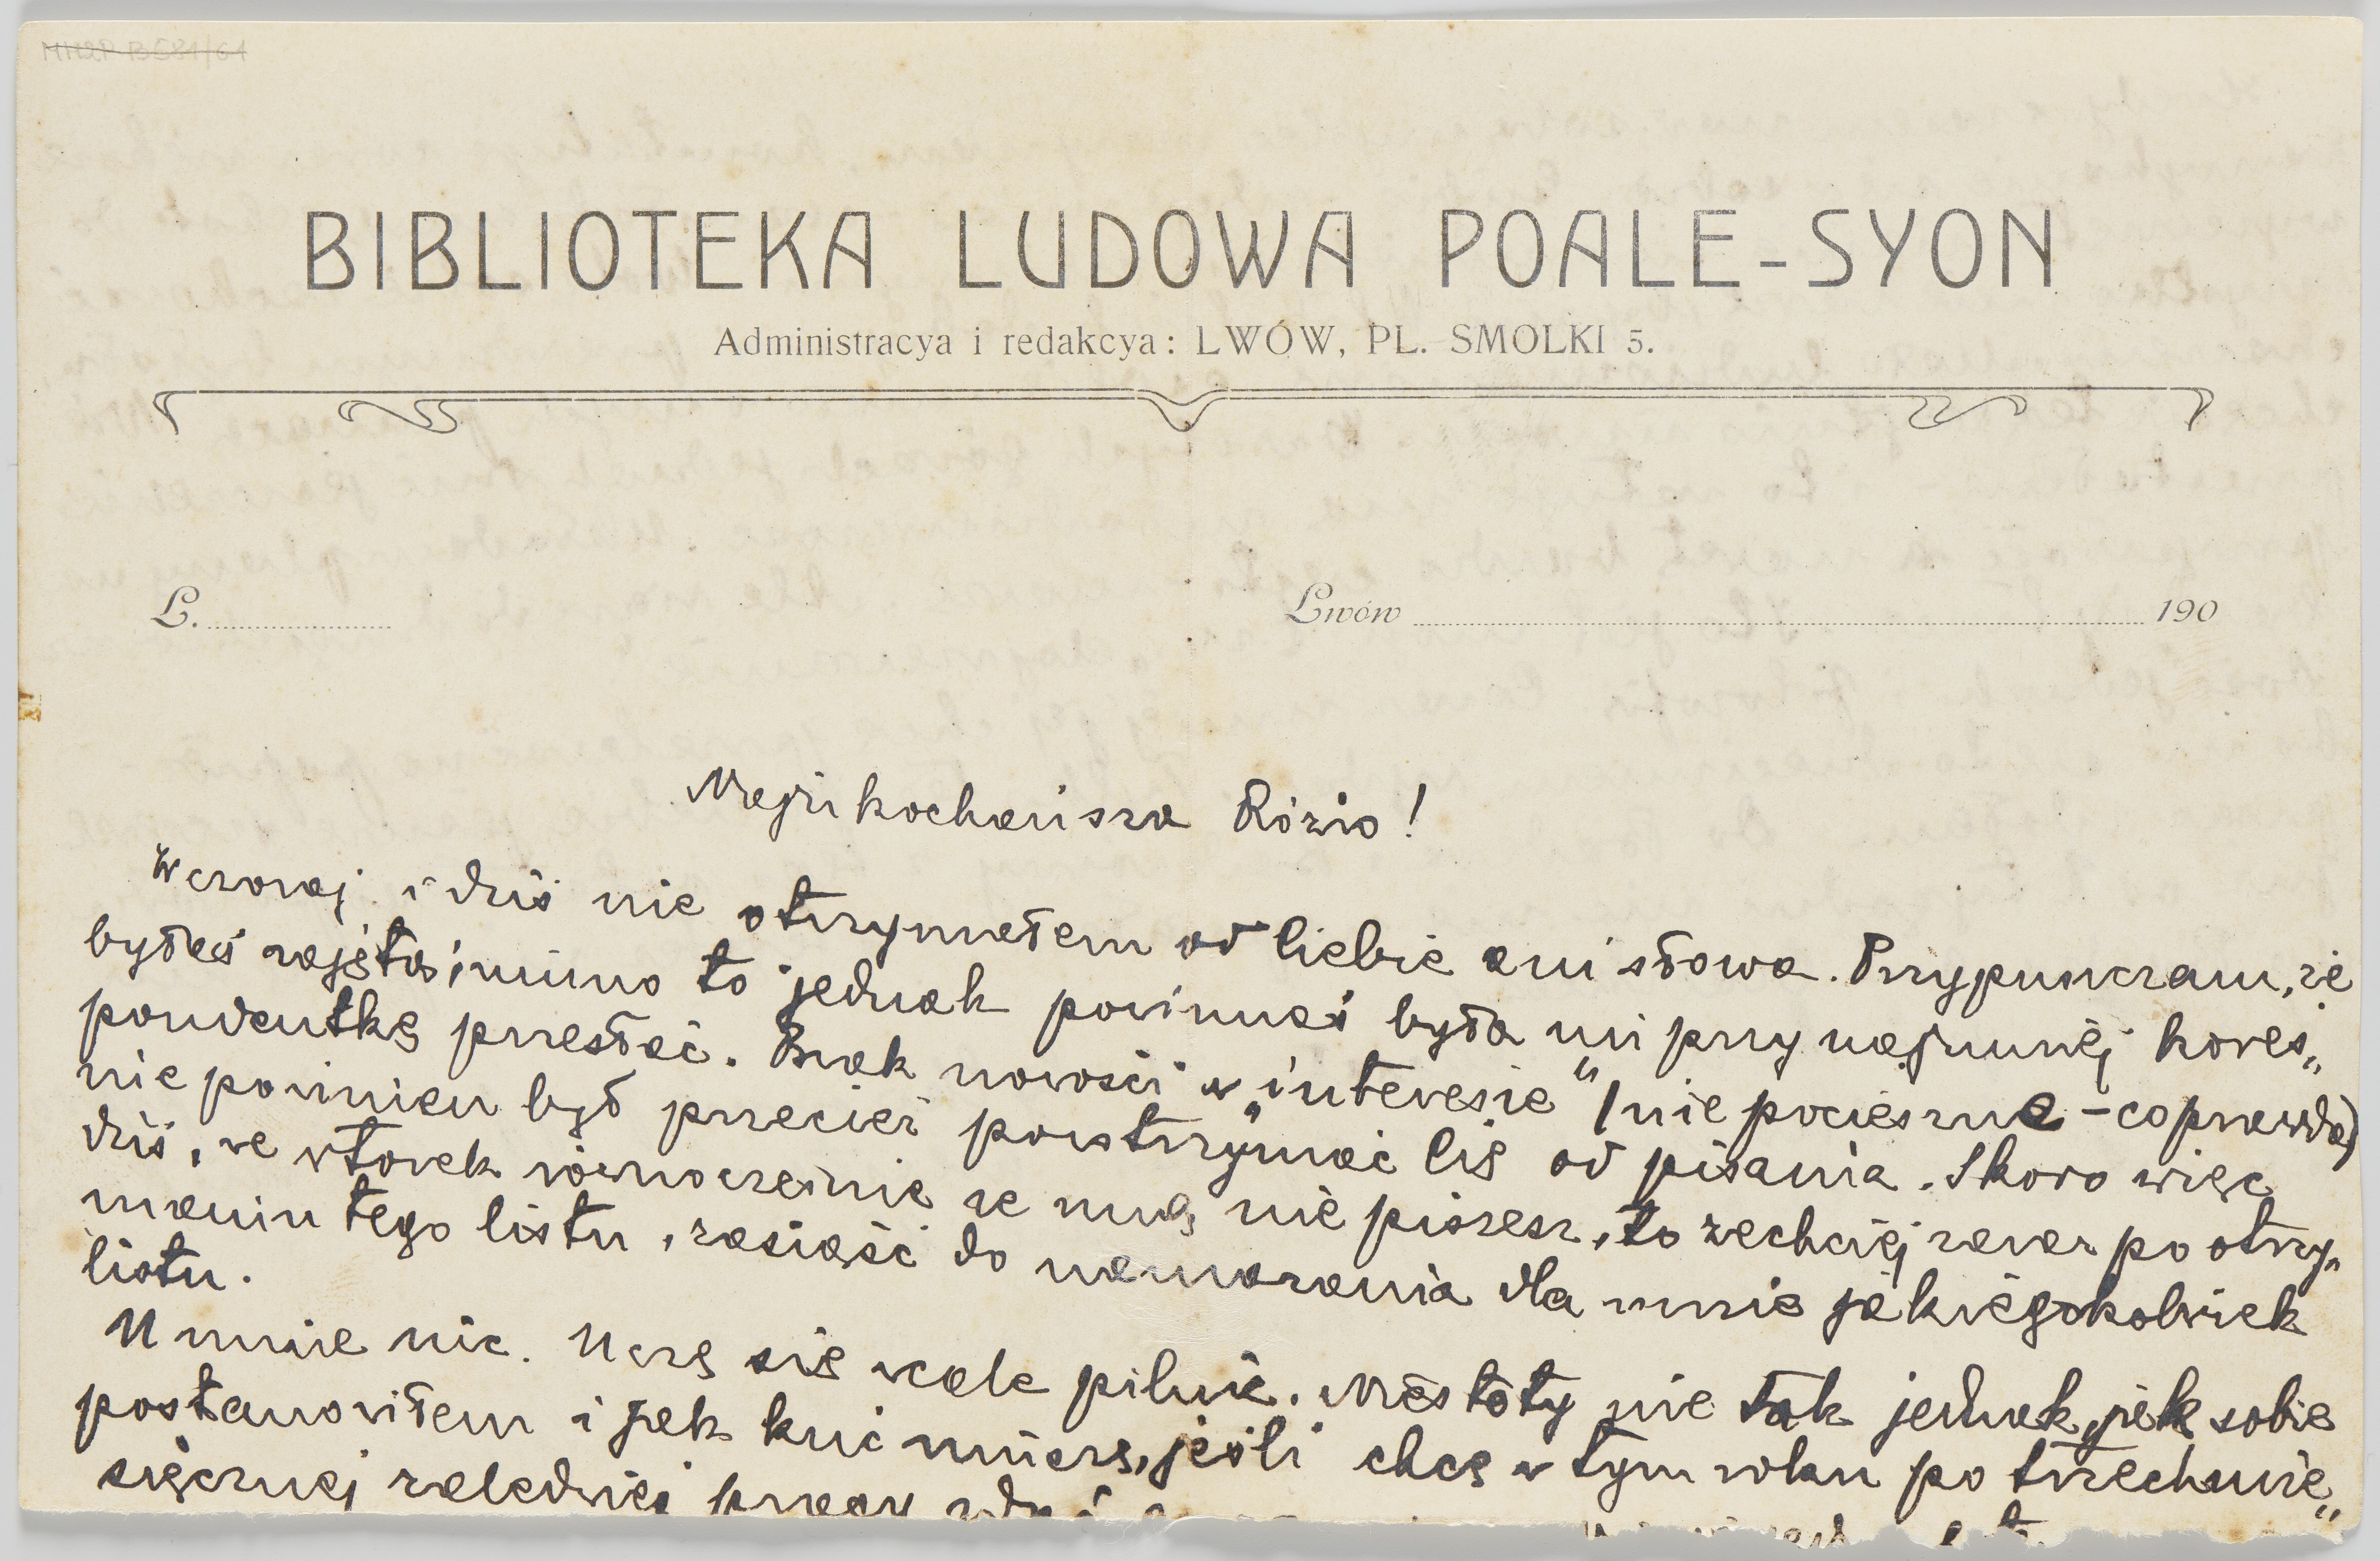 BIBLIOTEKA LUDOWA POALE-SYON
Administracya i redakcya: LWÓW, PL. SMOLKI 5.
L. Lwów 190
Najukochańsza Róziu!
Wczoraj i dziś nie otrzymałem od Ciebie ani słowa. Przypuszczam, że
byłaś zajęta; mimo to jednak powinnaś była mi przynajmniej kores„
pondentkę przesłać. Brak nowości w „interesie“ (niepocieszne - coprawda)
nie powinien był przecież powstrzymać Cię od pisania. Skoro więc
dziś, we wtorek równocześnie ze mną nie piszesz, to zechciej zaraz po otrzy„
maniu tego listu, zasiąść do nasmarania dla mnie jakiegokolwiek
listu.
U mnie nic. Uczę się wcale pilnie. Niestety nie tak jednak, jak sobie
postanowiłem i jak kuć muszę, jeśli chcę w tym roku po trzechmie„
sięcznej zaledwie pracy zdać